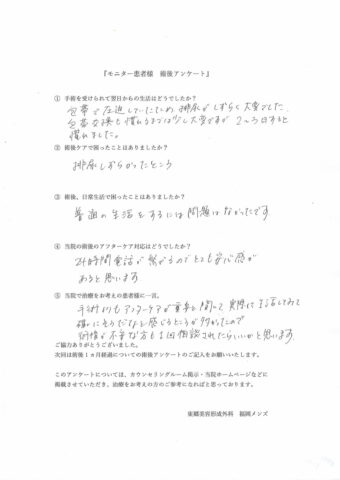 『モニター患者様　術後アンケート』
① 手術を受けられて翌日からの生活はどうでしたか？
包帯で圧迫していたため、排尿がしずらく大変でした。
包帯交換も慣れるまでは少し大変ですが2〜3日すると
慣れました。
② 術後ケアで困ったことはありましたか？
排尿しずらかったところ
③ 術後、日常生活で困ったことはありましたか？
普通の生活をするには問題はなかったです
④ 当院の術後のアフターケア対応はどうでしたか？
24時間電話が繋がるのでとても安心感が
あると思います
⑤ 当院で治療をお考えの患者様に一言。
手術よりもアフターケアが重要と聞いて実際に生活してみて
確かにそうだなと感じるところが多かったので
術後が不安な方も1回相談されたらいいかと思います。
ご協力ありがとうございました。
次回は術後１ヵ月経過についての術後アンケートのご記入をお願いいたします。
このアンケートについては、カウンセリングルーム掲示・当院ホームページなどに
掲載させていただき、治療をお考えの方のご参考になればと思っております。
東郷美容形成外科　福岡メンズ